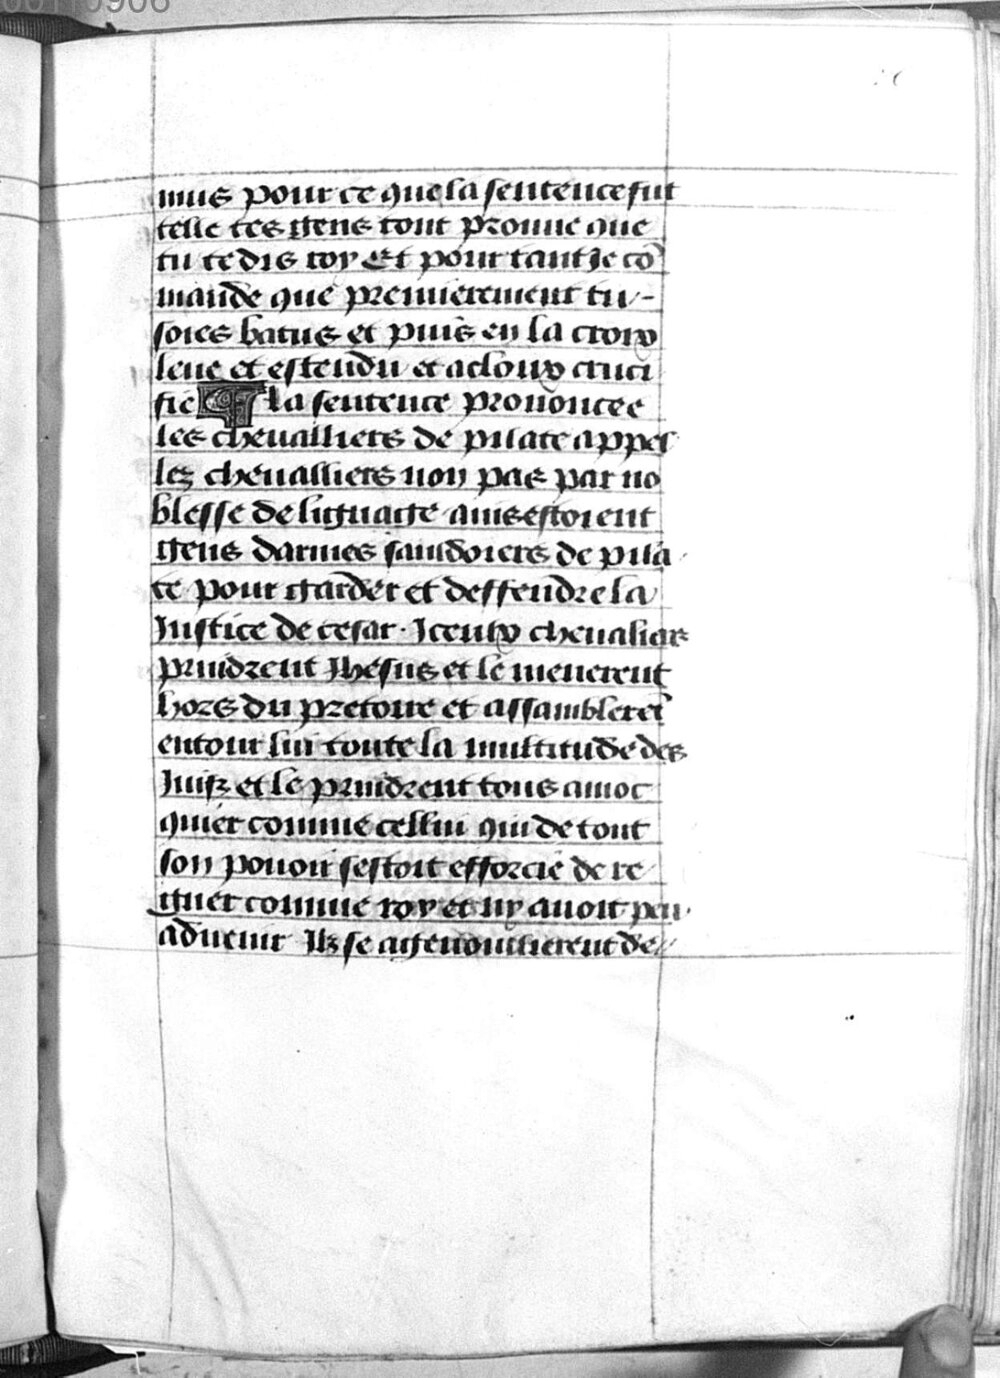 mus pour ce que la sentence fut
telle tes gens tont prouue que
tu te dis roy Et pour tant Je cō
mande que premierement tu-
soies batus et puis en la croix
leue et estendu et a cloux cruci
fie la sentence prononcee
les chevalliers de pilate appel
lez chevalliers non pas par no
blesse de lignaige mais estoient
gens darmes sauldoiers de pila
te pour garder et deffendre la
Justice de cesar. Iceulx chevaliers
prindrent Jhesus et le menerent
hors du pretoire et assamblerēt
entour lui toute la multitude des
Juifz et le prindrent tous a moc
quier comme cellui qui de tout
son pouoir sestoit efforcie de re
gner comme roy et ny auoit peu
aduenir Ilz se agenouillierent de